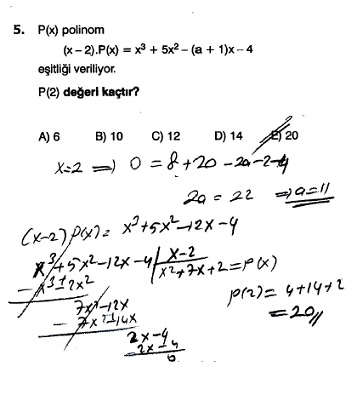 5. P(x) polinom
(x – 2).P(x) = x³ + 5x² – (a + 1)x – 4
eşitliği veriliyor.
P(2) değeri kaçtır?
A) 6 B) 10 C) 12 D) 14 E) 20
x=2 ⇒ 0 = 8+20-2a-2-4
2a = 22 ⇒ a=11
(x-2) P(x) = x³+5x²-12x-4
x³+5x²-12x-4 | x-2
- x³±2x² x²+7x+2 = P(x)
7x²-12x
- 7x²±14x
2x-4
2x-4
0
P(2) = 4+14+2
= 20 //